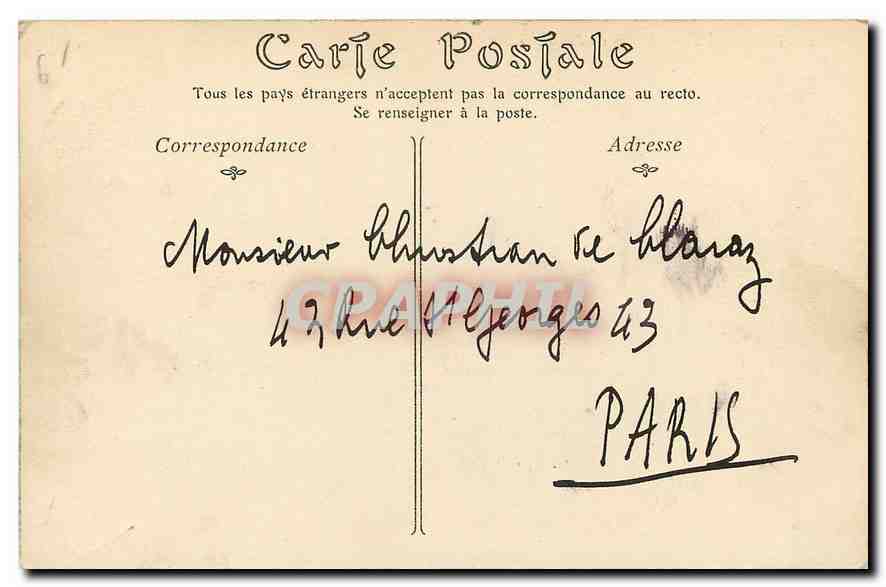 6
Carte Postale
Tous les pays étrangers n'acceptent pas la correspondance au recto.
Se renseigner à la poste.
Correspondance
Adresse
Monsieur Christian de Claraz
CPAPHIL
43 Rue St Georges 43
PARIS